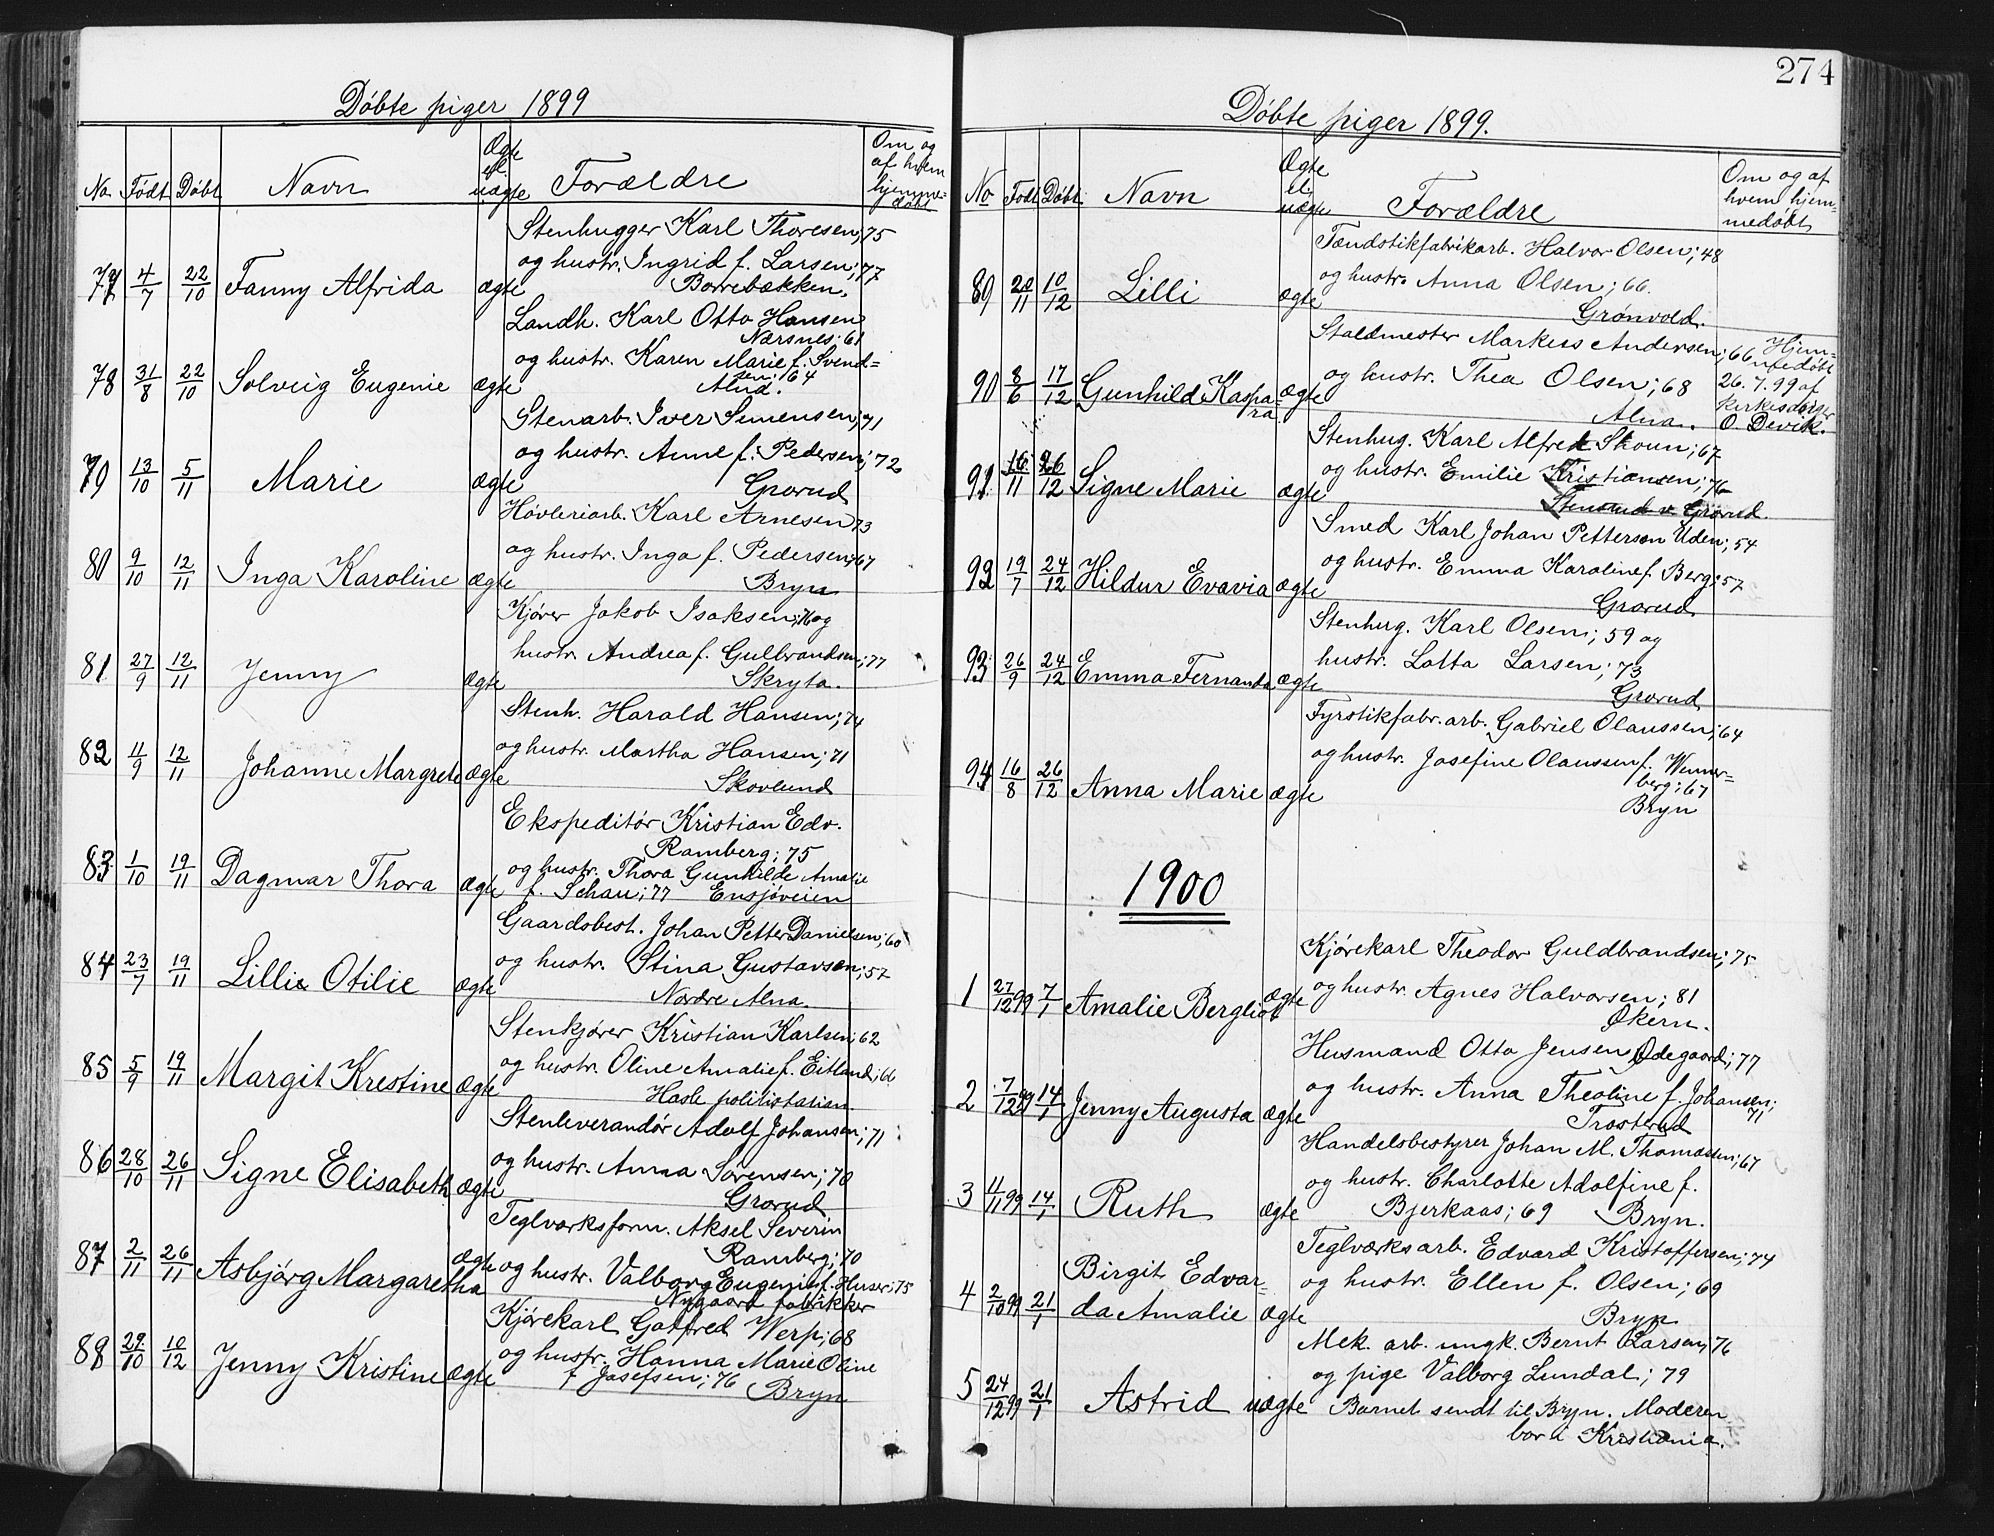 Døbte piger 1899
No. Født Døbt Navn Ægte el. uægte Forældre Om og af hvem hjemmedøbt
77 4/7 22/10 Fanny Alfrida ægte
Stenhugger Karl Thoresen; 75
og hustr. Ingrid f. Larsen; 77
Borrebækken.
78 31/8 22/10 Solveig Eugenie ægte
Landh. Karl Otto Hansen
Nærsnes; 61
og hustr. Karen Marie f. Svend-
sen; 64
Alna.
79 13/10 5/11 Marie ægte
Stenarb. Iver Simensen; 71
og hustr. Anne f. Pedersen; 72
Grorud
80 9/10 12/11 Inga Karoline ægte
Høvleriarb. Karl Arnesen 73
og hustr. Inga f. Pedersen; 67
Bryn
81 27/9 12/11 Jenny ægte
Kjører Jakob Isaksen; 76 og
hustr. Andrea f. Gulbrandsen; 77
Skryta.
82 11/9 12/11 Johanne Margrete ægte
Stenh. Harald Hansen; 74
og hustr. Martha Hansen; 71
Skovlund
83 1/10 19/11 Dagmar Thora ægte
Ekspeditør Kristian Edv.
Ramberg; 75
og hustr. Thora Gunhilde Amalie
f. Schau; 77 Ensjøveien
84 23/7 19/11 Lillie Otilie ægte
Gaardsbest. Johan Petter Danielsen; 60
og hustr. Stina Gustavsen; 57
Nordre Alna.
85 5/9 19/11 Margit Krestine ægte
Stenkjører Kristian Karlsen; 62
og hustr. Oline Amalie f. Eitland; 66
Hasle politistation.
86 28/10 26/11 Signe Elisabeth ægte
Stenleverandør Adolf Johansen; 71
og hustr. Anna Sørensen; 70
Grorud
87 2/11 26/11 Asbjørg Margaretha ægte
Teglværksform. Aksel Severin
Ramberg; 70
og hustr. Valborg Eugenie f. Huser; 75
Nygaard fabrikker
88 29/10 10/12 Jenny Kristine ægte
Kjørekarl Gotfred Werp; 68
og hustr. Hanna Marie Oline
f. Josefsen; 76 Bryn
274
Døbte piger 1899.
No Født Døbt Navn Ægte el. uægte Forældre Om og af hvem hjemmedøbt
89 20/11 10/12 Lilli ægte
Tændstikfabrikarb. Halvor Olsen; 48
og hustr. Anna Olsen; 66.
Grønvold.
90 8/6 17/12 Gunhild Kaspara ægte
Staldmester Markus Andersen; 66
og hustr. Thea Olsen; 68
Alna.
Hjem-
medøbt
26.7.99 af
kirkesanger
O. Devik.
91 16/11 26/12 Signe Marie ægte
Stenhug. Karl Alfred Skoun; 67
og hustr. Emilie Kristiansen; 76
Stensrud v. Grorud.
92 19/7 24/12 Hildur Evavia ægte
Smed Karl Johan Petterson Uden; 54
og hustr. Emma Karoline f. Berg; 57
Grorud
93 26/9 24/12 Emma Fernanda ægte
Stenhug. Karl Olsen; 59 og
hustr. Lotta Larsen; 73
Grorud
94 16/8 26/12 Anna Marie ægte
Fyrstikfabr. arb. Gabriel Olaussen; 64
og hustr. Josefine Olaussen f. Wenner-
berg; 67
Bryn
1900
1 27/12 99 7/1 Amalie Bergliot ægte
Kjørekarl Theodor Guldbrandsen; 75
og hustr. Agnes Halvorsen; 81
Økern.
2 7/12 99 14/1 Jenny Augusta ægte
Husmand Otto Jensen Ødegaard; 77
og hustr. Anna Theoline f. Johansen; 71
Trosterud
3 11/11 99 14/1 Ruth ægte
Handelsbestyrer Johan M. Thomassen; 67
og hustr. Charlotte Adolfine f.
Bjerkaas; 69 Bryn.
4 2/10 99 21/1 Birgit Edvar-
da Amalie ægte
Teglværksarb. Edvard Kristoffersen; 74
og hustr. Ellen f. Olsen; 69
Bryn
5 24/12 99 21/1 Astrid uægte
Mek. arb. ungk. Bernt Larsen; 76
og pige Valborg Lundal; 79
Barnet sendt til Bryn. Moderen
bor i Kristiania.